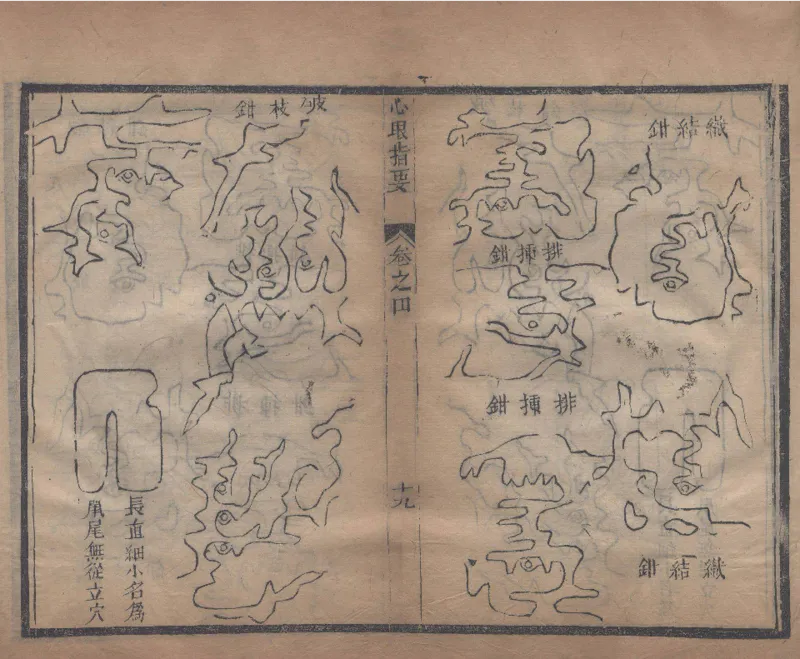 織結鉗
織結鉗
排揷鉗
排揷鉗
心眼指要
卷之四
十九
枝鉗
長直細小名爲
鼠尾無從立穴